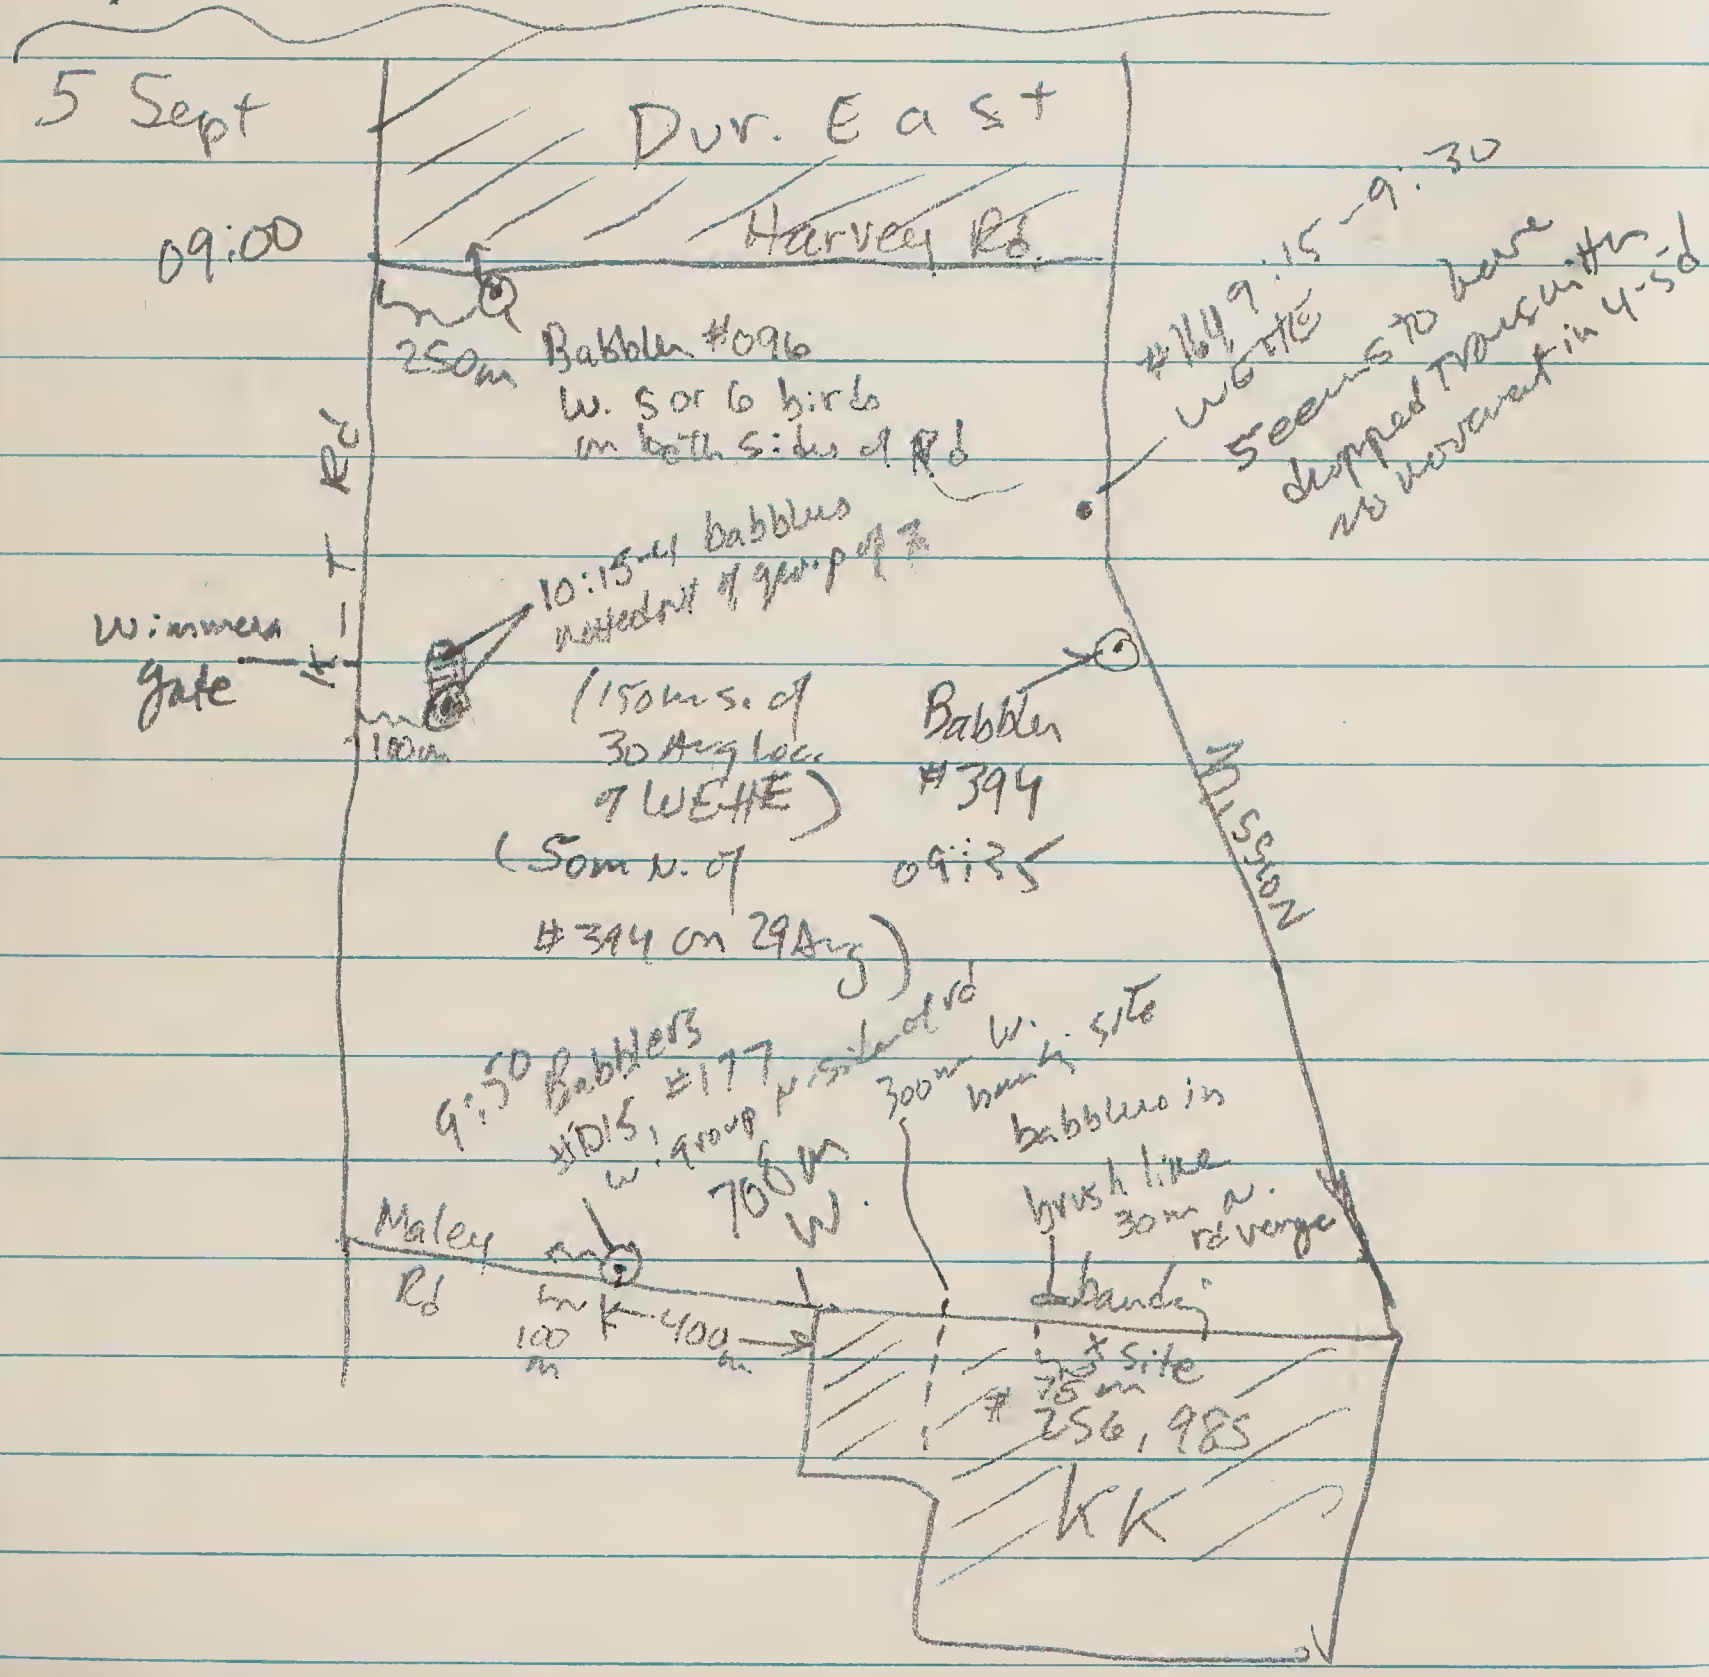 5 Sept
Dur. East
09:00
Harvey Rd.
250m
Babbler #096
w. 5 or 6 birds
on both sides of Rd
#164, 9:15-9:30
WEHE
Seems to have
dropped transmitter
no movement in 4-5d
K-T Rd
10:15-4 babblers
netted out of group of 7
Wimmera
gate
100m
(150m s. of
30 Aug loc.
of WEHE)
(50m N. of
#394 on 29 Aug)
Babbler
#394
09:35
Mission
9:50 Babblers
#015, #177
w. group N. side of rd
700m
W.
300m W.
banding site
babblers in
brush line
30m N.
rd verge
Maley
Rd
100
m
400
m
banding
x site
75m
#
256, 985
KK